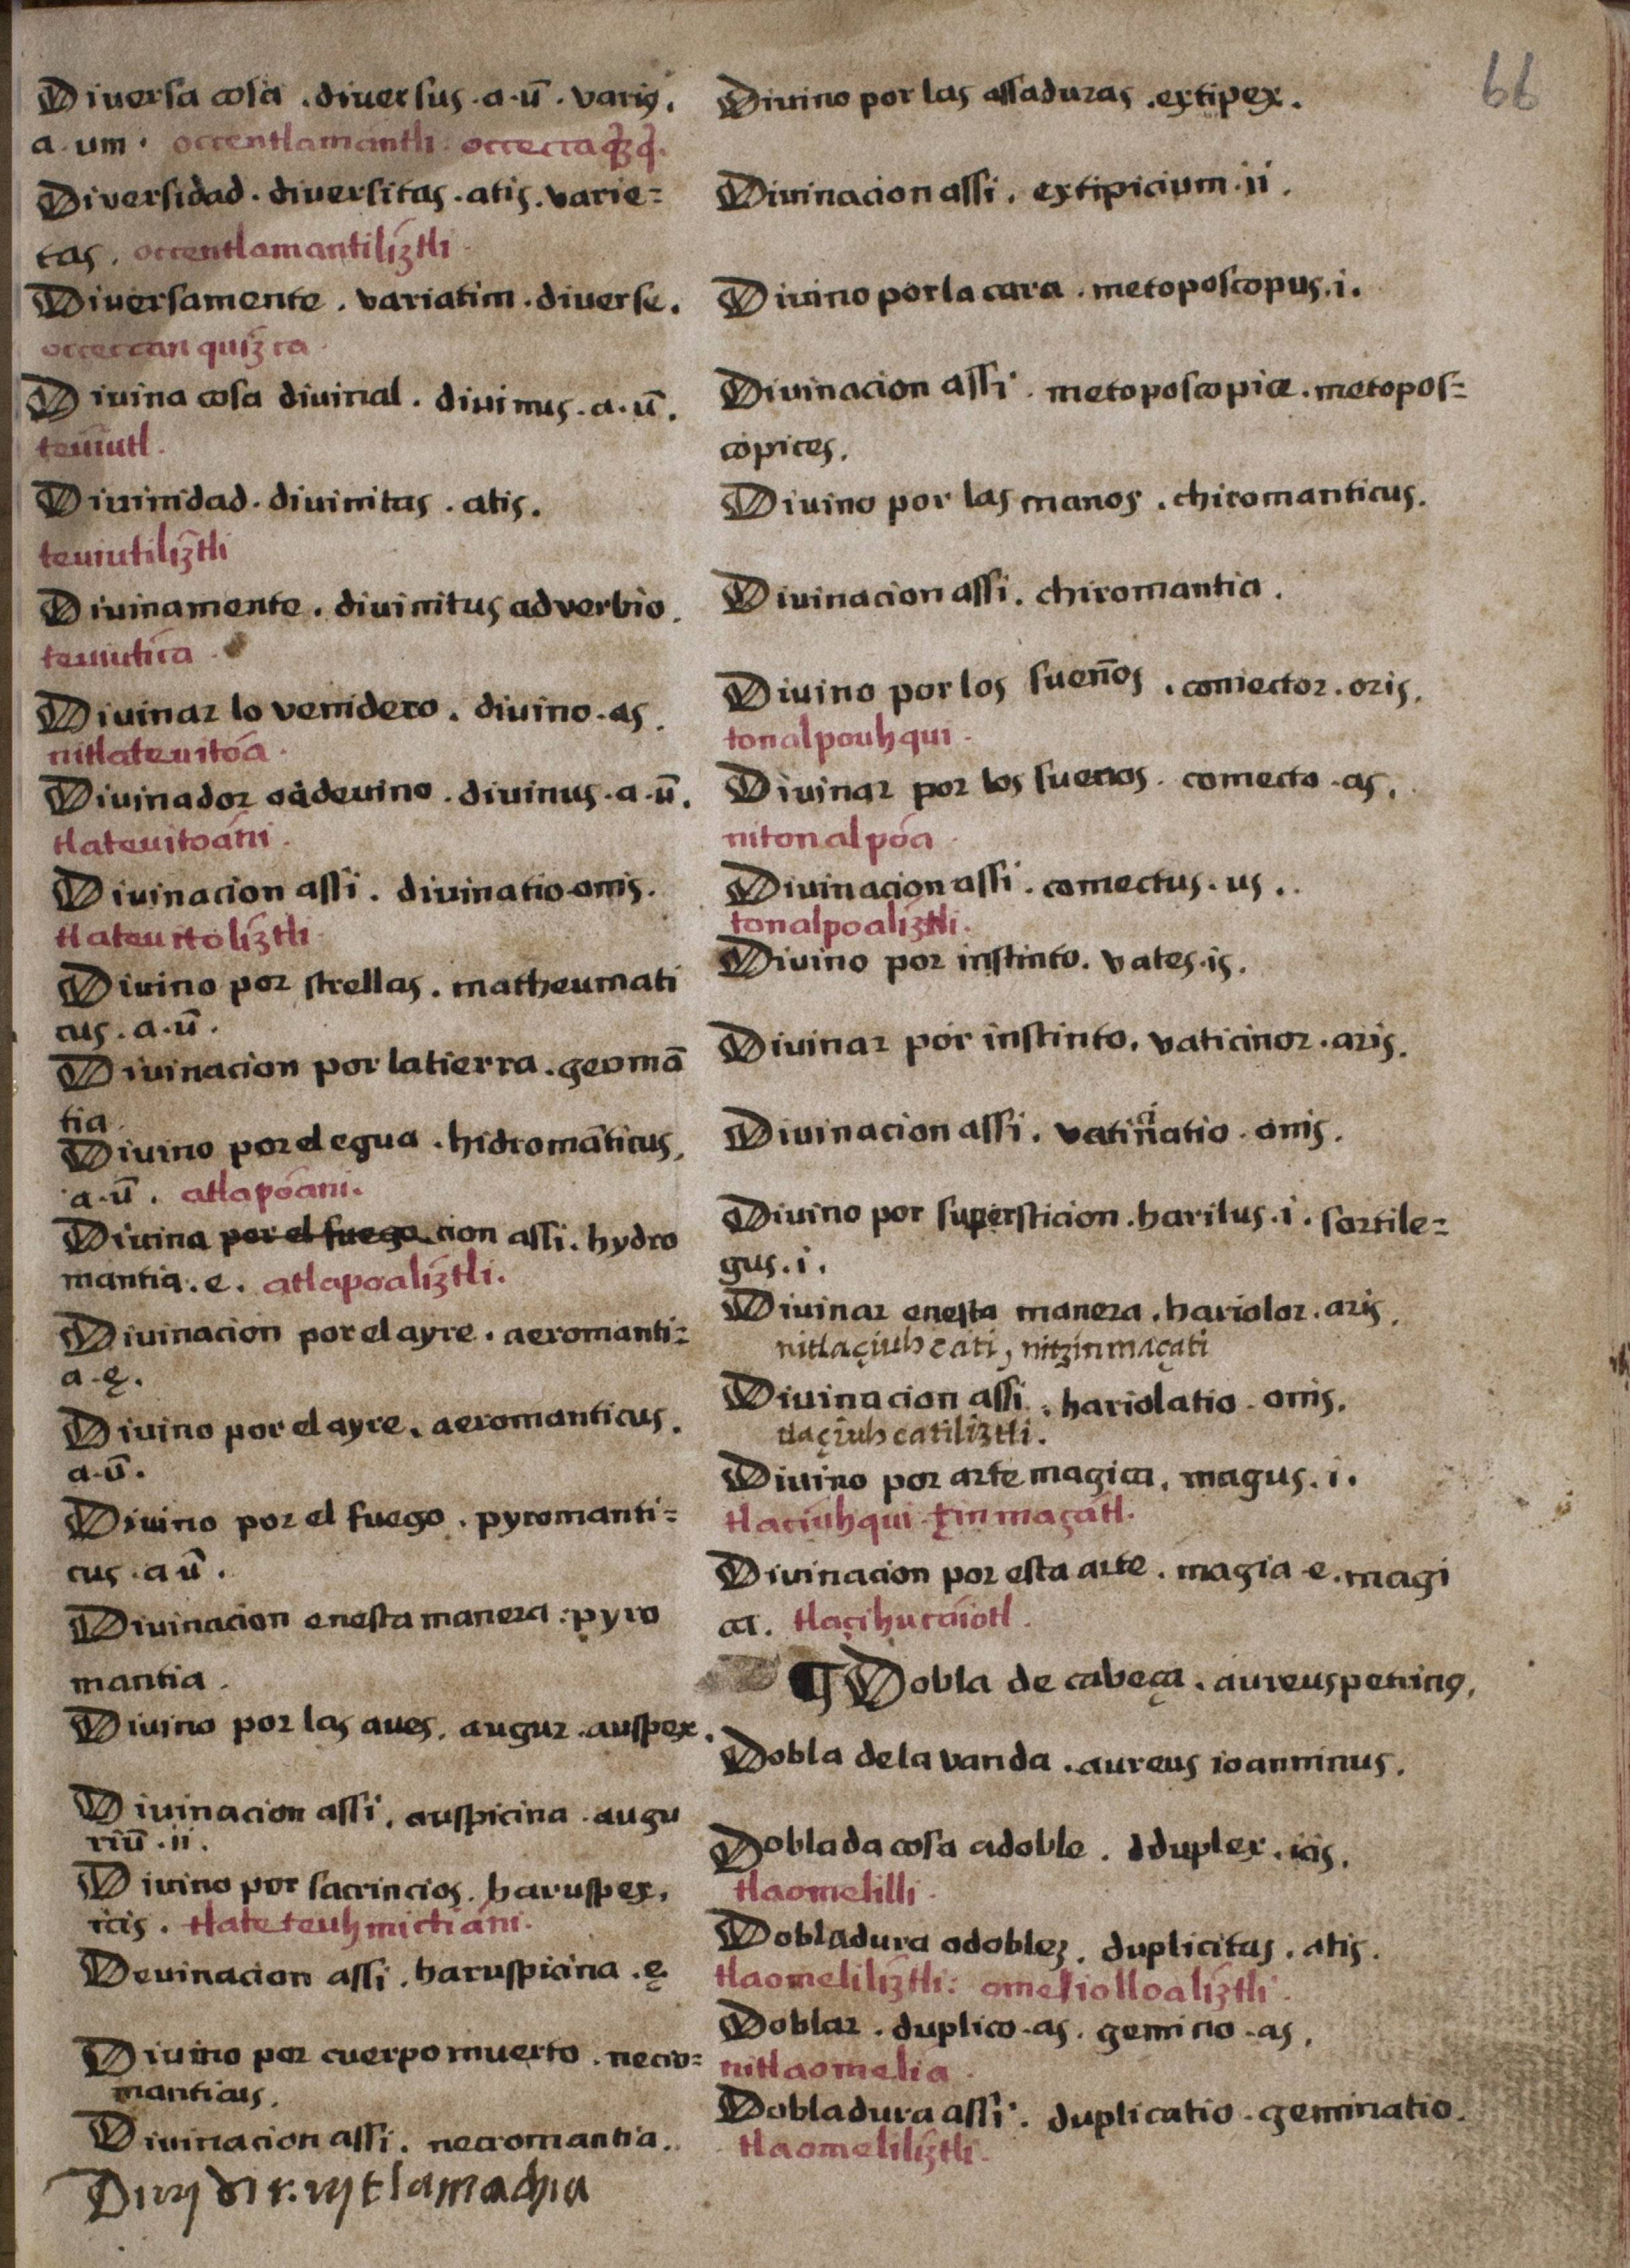 66
Diuersa cosa . diuersus . a . ū . variꝯ .
a . um . occentlamantli . occecca
Diversidad . diuersitas . atis . varie=
tas . occentlamantiliztli .
Diuersamente . variatim . diuerse .
occeccan quizca .
Diuina cosa diuinal . diuinus . a . ū .
teuiutl .
Diuinidad . diuinitas . atis .
teuiutiliztli
Diuinamente . diuinitus adverbio .
teuiutica .
Diuinar lo venidero . diuino . as .
nitlateuitóa .
Diuinador o adeuino . diuinus . a . ū .
tlateuitoáni .
Diuinacion assi . diuinatio . onis .
tlateuitoliztli
Diuino por strellas . matheumati
cus . a . ū .
Diuinacion por la tierra . geomā
tia .
Diuino por el egua . hidromāticus ,
a . ū . atlapóani .
Diuina por el fuego cion assi . hydro
mantia . e . atlapoaliztli .
Diuinacion por el ayre . aeromanti=
a . ę .
Diuino por el ayre . aeromanticus .
a . ū .
Diuino por el fuego . pyromanti=
cus . a ū .
Diuinacion enesta manera : pyro
mantia .
Diuino por las aues . augur . auspex .
Diuinacion assi . auspicina . augu
riū . ii .
Diuino por sacrincios . haruspex .
icis . tlateteuhmictiáni .
Deuinacion assi . haruspicina . ę
Diuino por cuerpo muerto . necro=
manticus .
Diuinacion assi . necromantia .
nytlamachia
Diuino por las assaduras . extipex .
Diuinacion assi . extipicium . ii .
Diuino por la cara . metoposcopus . i .
Diuinacion assi . metoposcopiæ . metopos=
copices .
Diuino por las manos . chiromanticus .
Diuinacion assi . chiromantia .
Diuino por los sueños . coniector . oris .
tonalpouhqui .
Diuinar por los suenos . coniecto . as .
nitonalpóa .
Diuinacion assi . coniectus . us . .
tonalpoaliztli .
Diuino por instinto . vates . is .
Diuinar por instinto . vaticinor . aris .
Diuinacion assi . vaticinatio . onis .
Diuino por supersticion . harilus . i . sortile=
gus . i .
Diuinar enesta manera . hariolor . aris .
nitlaçiuhcati , nitzinmaçati
Diuinacion assi . hariolatio . onis .
tlaçiuhcatiliztli .
Diuino por arte magica . magus . i .
tlaciuhqui tzinmaçatl .
Diuinacion por esta arte . magia . e . magi
ca . tlaçihucaiotl .
¶ Dobla de cabeça . aureus petrinꝯ .
Dobla de la vanda . aureus ioanninus .
Doblada cosa adoble . dduplex . icis .
tlaomelilli .
Dobladura o doblez . duplicitas . atis .
tlaomeliliztli : omeliolloaliztli .
Doblar . duplico . as . gemino . as .
nitlaomelia .
Dobladura assi . duplicatio . geminatio .
tlaomeliliztli .